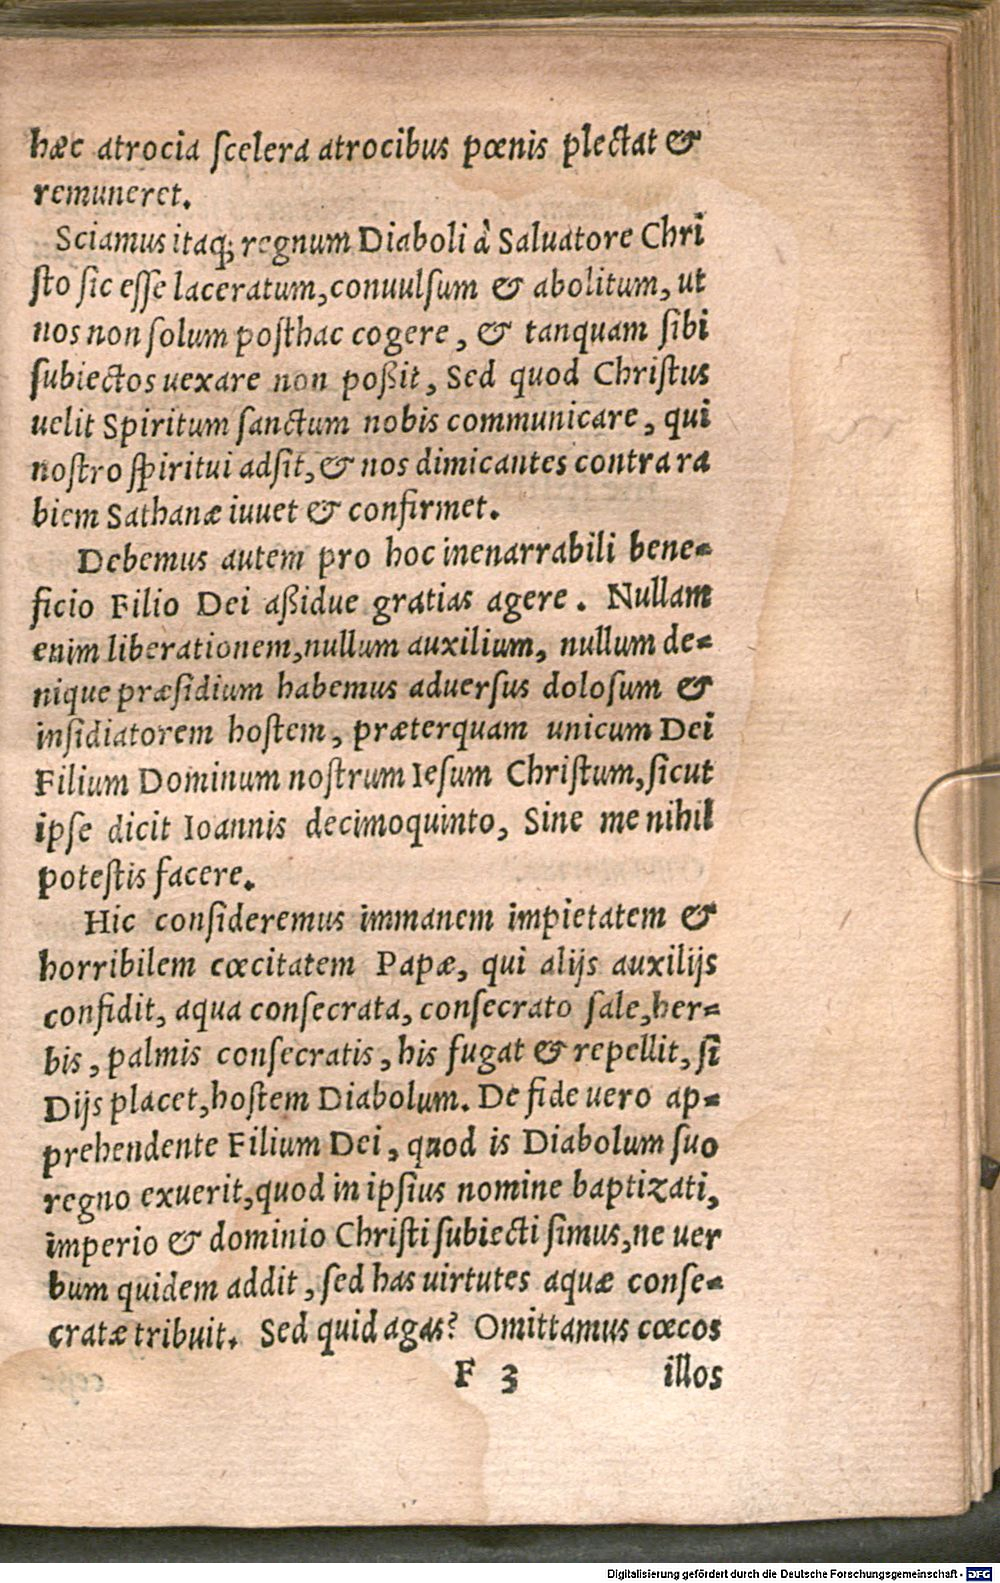 hæc atrocia ſcelera atrocibus pœnis plectat &
remuneret.
Sciamus itaq; regnum Diaboli à Saluatore Chri
ſto ſic eſſe laceratum, conuulſum & abolitum, ut
nos non ſolum poſthac cogere, & tanquam ſibi
ſubiectos uexare non poßit, Sed quod Chriſtus
uelit Spiritum ſanctum nobis communicare, qui
noſtro ſpiritui adſit, & nos dimicantes contra ra
biem Sathanæ iuuet & confirmet.
Debemus autem pro hoc inenarrabili bene-
ficio Filio Dei aßidue gratias agere. Nullam
enim liberationem, nullum auxilium, nullum de-
nique præſidium habemus aduerſus doloſum &
inſidiatorem hoſtem, præterquam unicum Dei
Filium Dominum noſtrum Ieſum Chriſtum, ſicut
ipſe dicit Ioannis decimoquinto, Sine me nihil
poteſtis facere.
Hic conſideremus immanem impietatem &
horribilem cœcitatem Papæ, qui alijs auxilijs
confidit, aqua conſecrata, conſecrato ſale, her-
bis, palmis conſecratis, his fugat & repellit, ſi
Dijs placet, hoſtem Diabolum. De fide uero ap-
prehendente Filium Dei, quod is Diabolum ſuo
regno exuerit, quod in ipſius nomine baptizati,
imperio & dominio Chriſti ſubiecti ſimus, ne uer
bum quidem addit, ſed has uirtutes aquæ conſe-
cratæ tribuit. Sed quid agas? Omittamus cœcos
F 3 illos
Digitalisierung gefördert durch die Deutsche Forschungsgemeinschaft - DFG